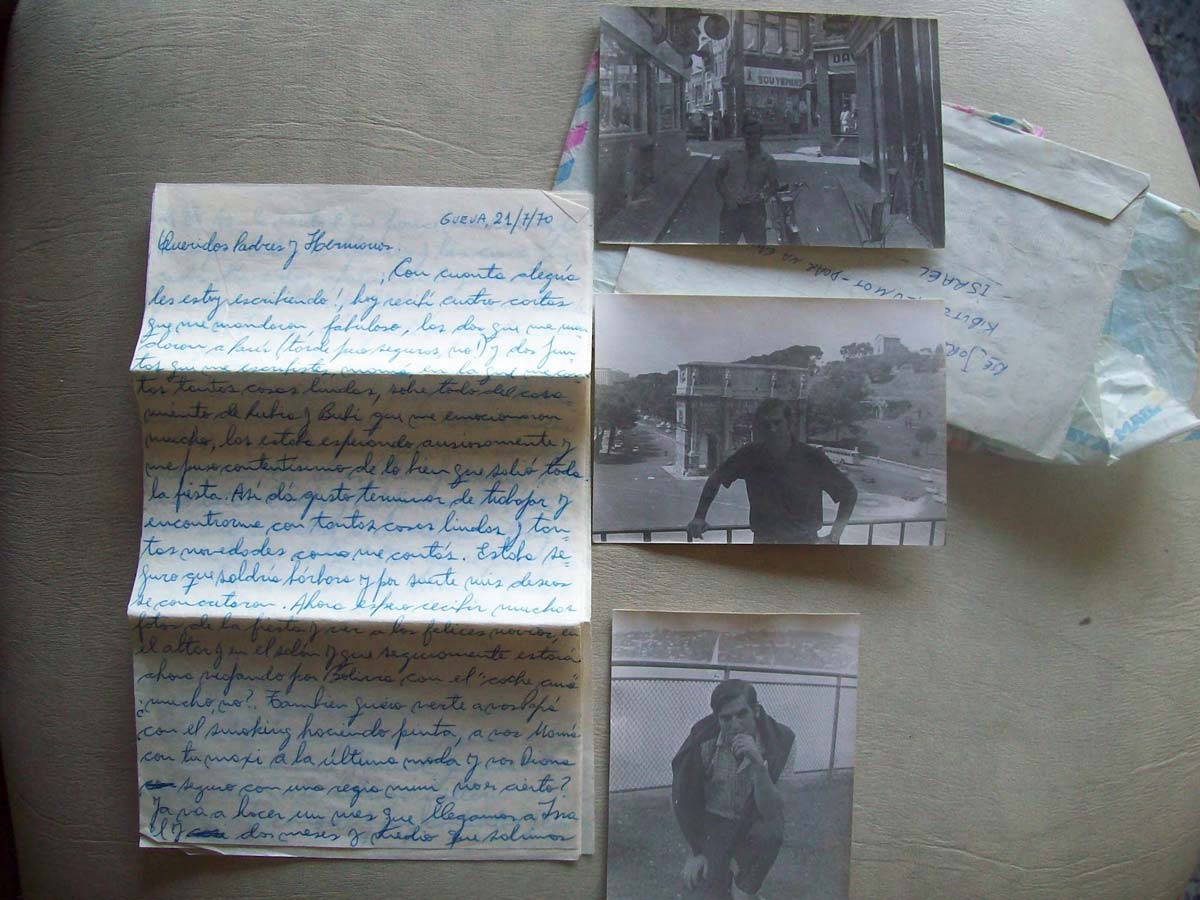 GUEVA, 21/7/70
Queridos Padres y Hermanos.
¡Con cuanta alegría
les estoy escribiendo!, hoy recibí cuatro cartas
que me mandaron, fabuloso, las dos que me man
daron a París (tarde pero seguros, no!) y dos jun
tas que me escribiste, mamá, en la que me con
tás tantas cosas lindas, sobre todo del casa
miento de Rubra y Bubi que me emocionaron
mucho, los estaba esperando ansiosamente y
me puso contentísimo de lo bien que salió toda
la fiesta. Así dá gusto terminar de trabajar y
encontrarme con tantas cosas lindas y tan-
tas novedades como me contás. Estaba se-
guro que saldría bárbara y por suerte mis deseos
se concretaron. Ahora espero recibir muchas
fotos de la fiesta y ver a los felices novios, en
el altar y en el salón y que seguramente estará
ahora viajando por Bolivia con el "coche
mucho, no?. También quiero verte a vos Papá
con el smoking haciendo pinta, a vos Mamá
con tu maxi a la última moda y vos Diana
seguro con una regia mini no es cierto?
Ya va a hacer un mes que llegamos a Isra
el y dos meses y medio que salimos
SOUVENIRS
DA
KIBUTZ
ISRAEL
MAIL